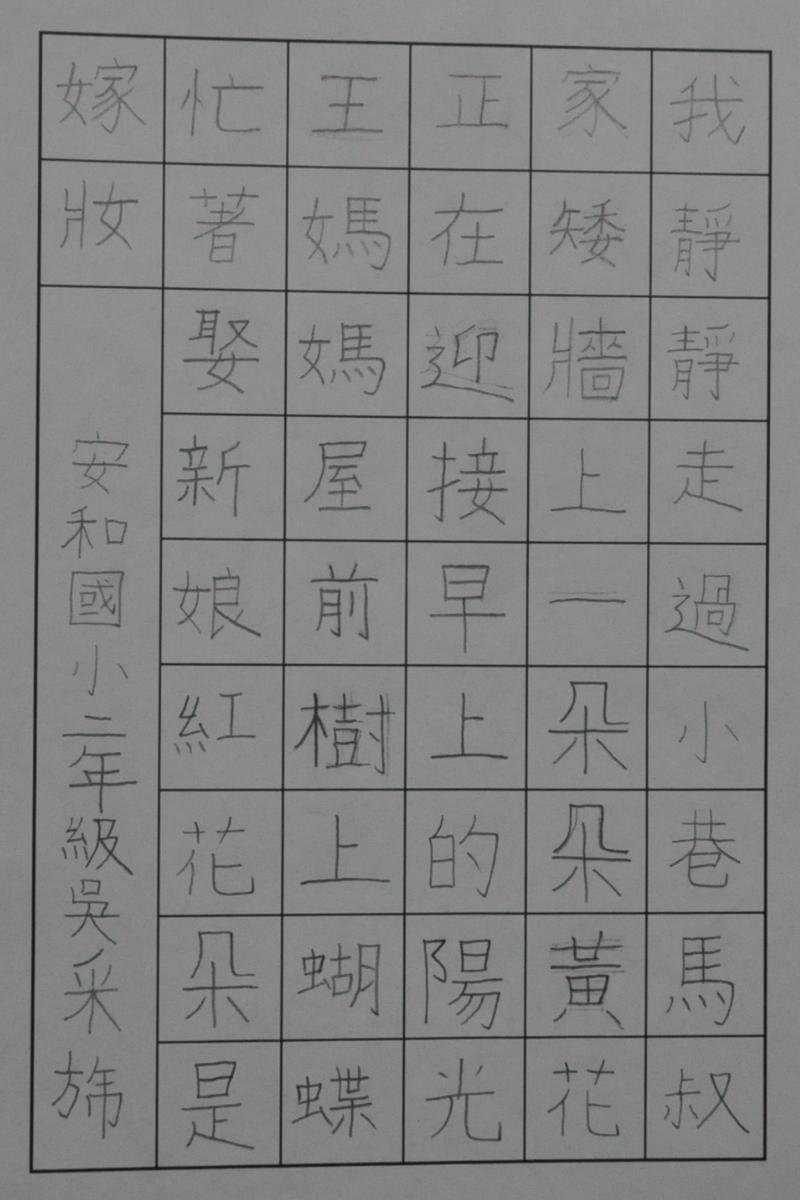 我靜靜走過小巷馬叔
家矮牆上一朵朵黃花
正在迎接早上的陽光
王媽媽屋前樹上蝴蝶
忙著娶新娘紅花朵是
嫁妝
安和國小二年級吳采